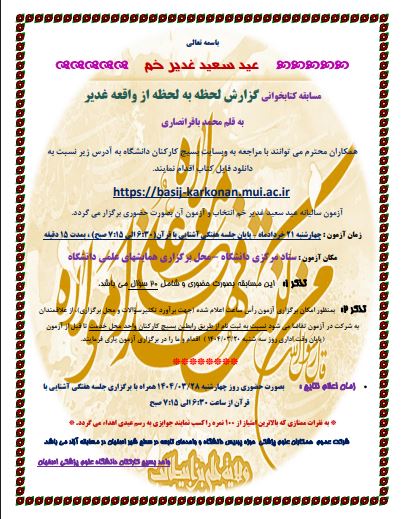 باسمه تعالی
عید سعید غدیر خم
مسابقه کتابخوانی گزارش لحظه به لحظه از واقعه غدیر
به قلم محمد باقر انصاری
همکاران محترم می توانند با مراجعه به وبسایت بسیج کارکنان دانشگاه به آدرس زیر نسبت به
دانلود فایل کتاب اقدام نمایند.
https://basij-karkonan.mui.ac.ir
آزمون سالیانه عید سعید غدیر خم انتخاب و آزمون آن بصورت حضوری برگزار می گردد.
زمان آزمون : چهارشنبه ۲۱ خردادماه - پایان جلسه هفتگی آشنایی با قرآن (۶:۳۰ الی ۷:۱۵ صبح) ، بمدت ۱۵ دقیقه
مکان آزمون : ستاد مرکزی دانشگاه - محل برگزاری همایشهای علمی دانشگاه
تذکر ۱: این مسابقه بصورت حضوری و شامل ۲۰ سوال می باشد.
تذکر ۲: بمنظور امکان برگزاری آزمون رأس ساعت اعلام شده (جهت برآورد تکثیرسوالات و محل برگزاری)، از علاقمندان
به شرکت در آزمون تقاضا می شود نسبت به ثبت نام از طریق رابطین بسیج کارکنان واحد محل خدمت تا قبل از آزمون
(پایان وقت اداری روز سه شنبه ۱۴۰۴/۰۳/۲۰ ) اقدام و ما را در برگزاری آزمون یاری فرمایند.
********
• زمان اعلام نتایج : بصورت حضوری روز چهارشنبه ۱۴۰۴/۰۳/۲۸ همراه با برگزاری جلسه هفتگی آشنایی با
قرآن از ساعت ۶:۳۰ الی ۷:۱۵ صبح
* به نفرات ممتازی که بالاترین امتیاز از ۱۰۰ نمره را کسب نمایند جوایزی به رسم عیدی اهداء می گردد. *
شرکت عموم همکاران علوم پزشکی حوزه پردیس دانشگاه و واحدهای تابعه در سطح شهر اصفهان در مسابقه آزاد می باشد
واحد بسیج کارکنان دانشگاه علوم پزشکی اصفهان